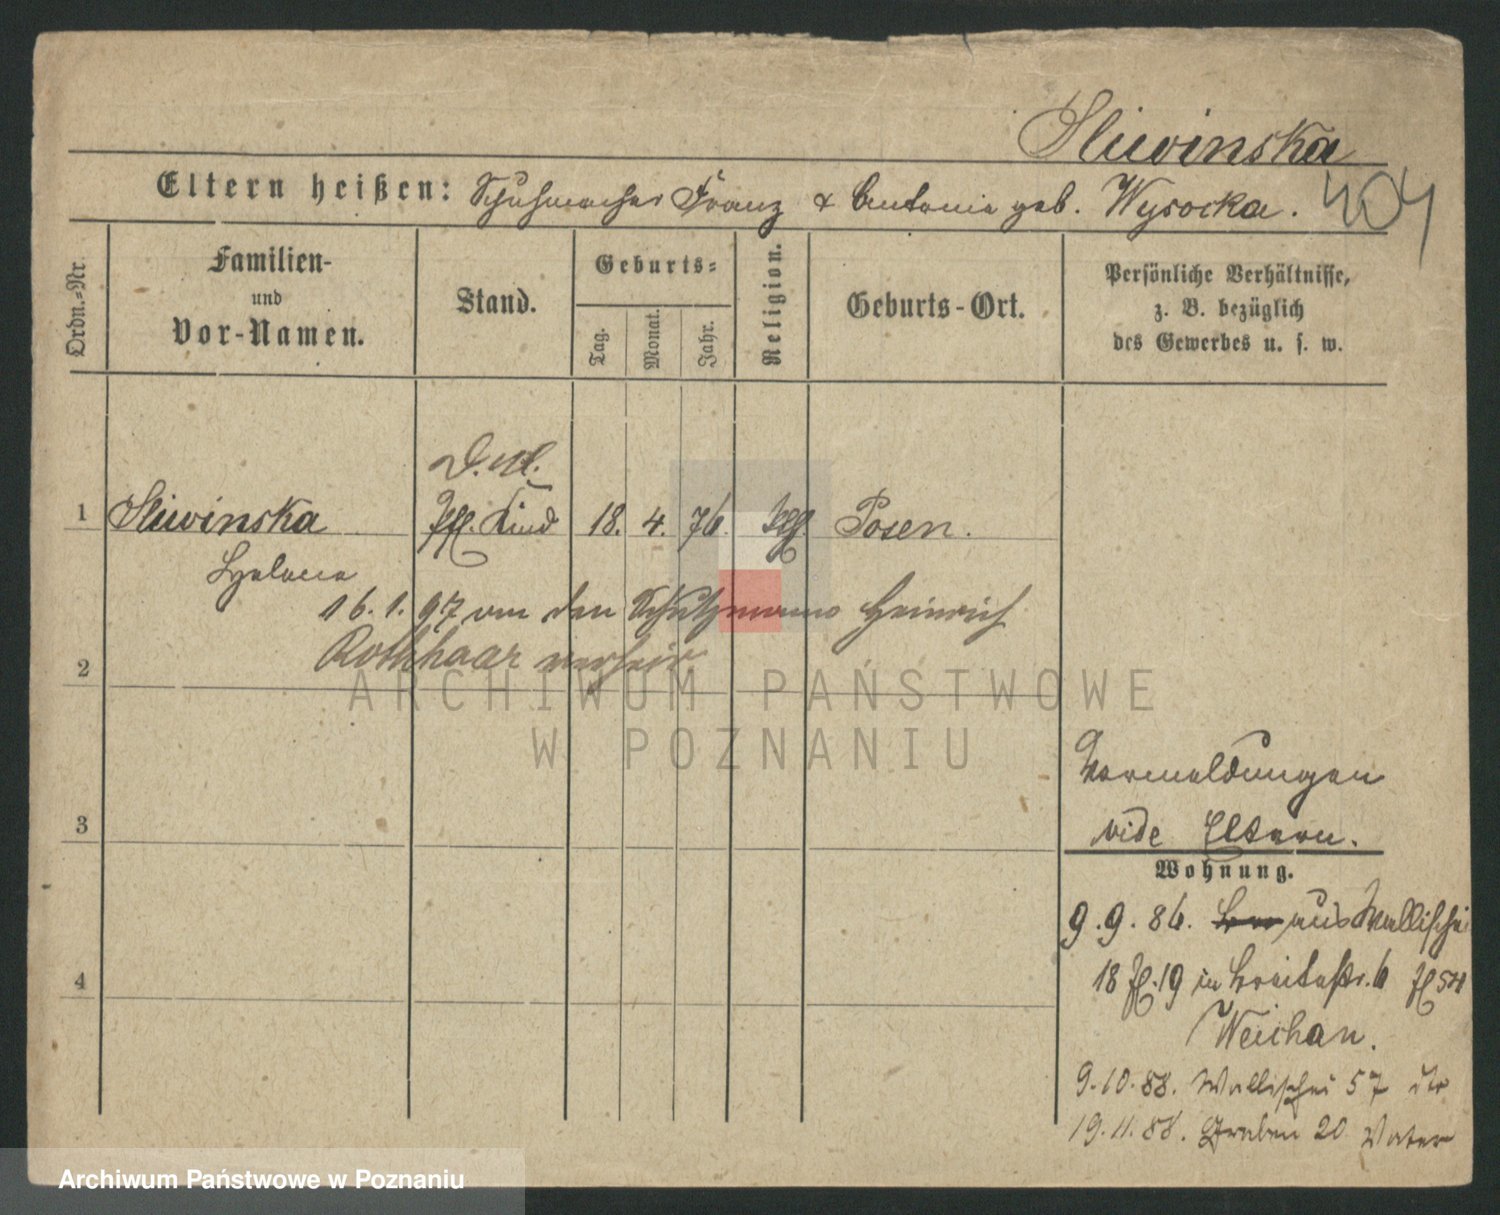 Sliwinska
404
Eltern heißen: Schuhmacher Franz & Antonie geb. Wysocka.
Ordn.-Nr.
Familien-
und
Vor-Namen.
Stand.
Geburts-
Tag.
Monat.
Jahr.
Religion.
Geburts-Ort.
Persönliche Verhältnisse,
z. B. bezüglich
des Gewerbes u. s. w.
1 Sliwinska Kind 18. 4. 76. Posen.
Helene
16.1.97 von den Schutzmann Heinrich
Rothhaar verheir.
2
ARCHIWUM PAŃSTWOWE
W POZNANIU
Vormeldungen
vide Eltern.
3
Wohnung.
9.9.86. aus Wallischei
18 19 in Breitestr. 6
4
9.10.88. Wallischei 57
19.11.88. Graben 20 Vater
Archiwum Państwowe w Poznaniu